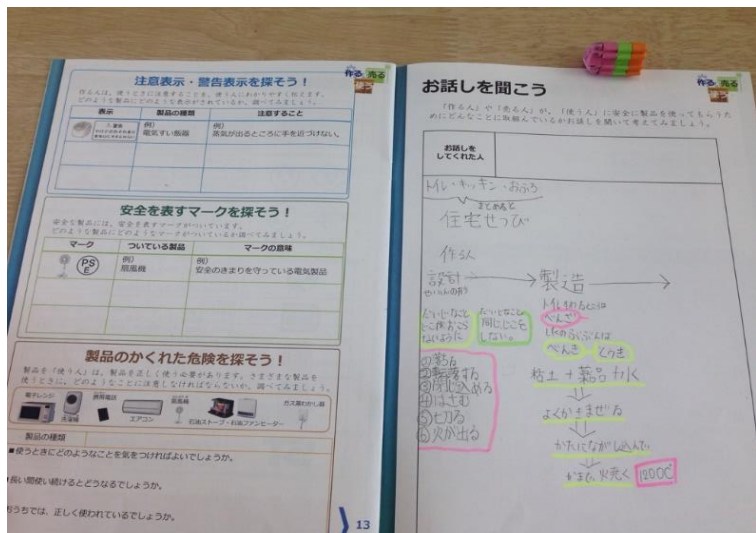 注意表示・警告表示を探そう！
作る 売る
使う
作る人は、使うときに注意することを、使う人にわかりやすく伝えます。
どのような製品にどのような表示がされているか、調べてみましょう。
表示 製品の種類 注意すること
警告
例）
電気すい飯器
例）
蒸気が出るところに手を近づけない。
安全を表すマークを探そう！
安全な製品には、安全を表すマークがついています。
どのような製品にどのようなマークがついているか調べてみましょう。
マーク ついている製品 マークの意味
PS
E
例）
扇風機
例）
安全のきまりを守っている電気製品
製品のかくれた危険を探そう！
製品を「使う人」は、製品を正しく使う必要があります。さまざまな製品を
使うときに、どのようなことに注意しなければならないか、調べてみましょう。
電子レンジ 洗濯機 携帯電話 エアコン 扇風機 石油ストーブ・石油ファンヒーター ガス湯わかし器
製品の種類
■使うときにどのようなことを気をつければよいでしょうか。
長い間使い続けるとどうなるでしょうか。
おうちでは、正しく使われているでしょうか。
13
お話しを聞こう
作る 売る
使う
「作る人」や「売る人」が、「使う人」に安全に製品を使ってもらうた
めにどんなことに取組んでいるかお話しを聞いて考えてみましょう。
お話しを
してくれた人
トイレ・キッチン・おふろ
まとめると
住宅せつび
作る人
設計 → 製造 →
同じじこを
しない。
べんざ
べんき とうき
粘土＋薬品＋水
よくかきまぜる
かたにながし込んで
かまで 火元く 1200℃
④はさむ
⑤切る
⑥火が出る